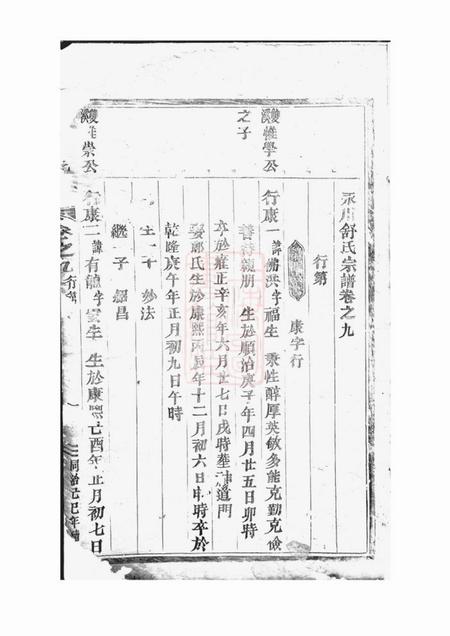 舒氏宗譜卷之九
行第
康字行
雙 惟學公
之子
行康一 諱 洪字福生 秉性醇厚英敏多能克勤克儉
善待親朋 生於順治庚子年四月廿五日卯時
卒於雍正辛亥年六月廿七日戌時葬 道門
娶鄭氏生於康熙丙辰年十二月初六日申時卒於
乾隆庚午年正月初九日午時
生一子 妙法
繼一子 昌
惟崇公
行康二 諱有 字雲生 生於康熙己酉年正月初七日
卷之九 行第
同治己巳年